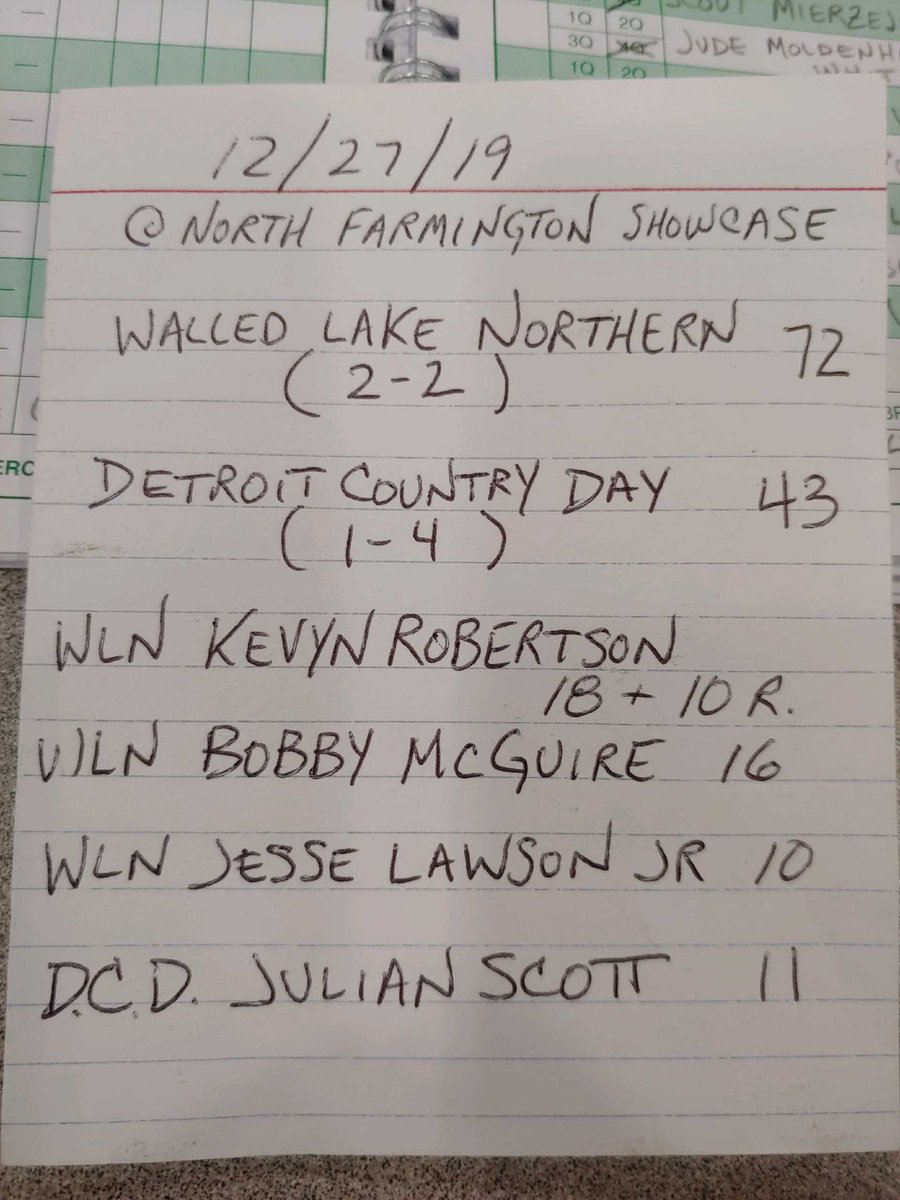 10 20
MIERZEJ
30 40 JUDE MOLDENH
10 20
12/27/19
@ NORTH FARMINGTON SHOWCASE
WALLED LAKE NORTHERN 72
(2-2)
DETROIT COUNTRY DAY 43
(1-4)
WLN KEVYN ROBERTSON
18 + 10 R.
WLN BOBBY MCGUIRE 16
WLN JESSE LAWSON JR 10
D.C.D. JULIAN SCOTT 11